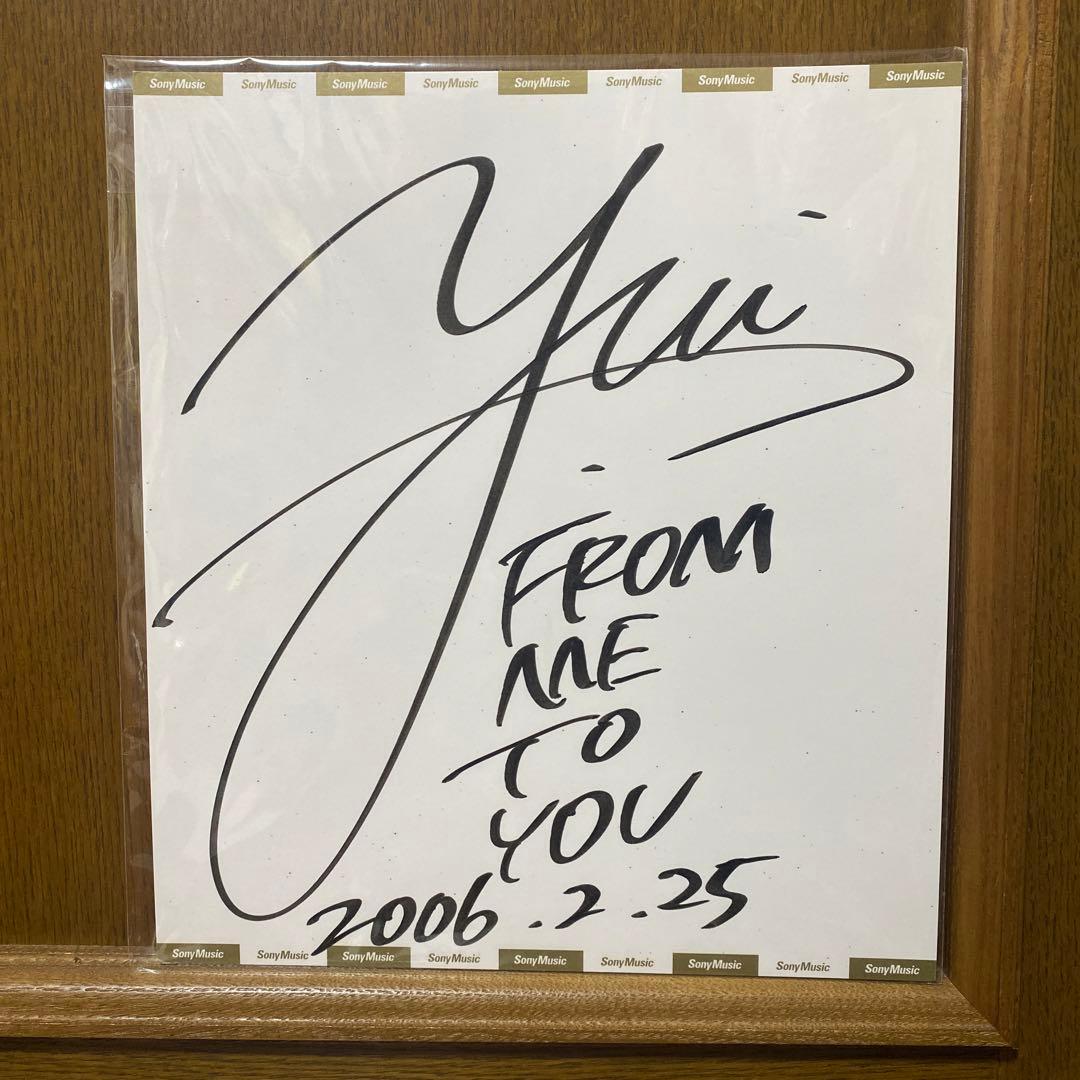 SonyMusic SonyMusic SonyMusic SonyMusic SonyMusic SonyMusic SonyMusic SonyMusic SonyMusic
Yui
FROM
ME
TO
YOU
2006.2.25
SonyMusic SonyMusic SonyMusic SonyMusic SonyMusic SonyMusic SonyMusic SonyMusic SonyMusic